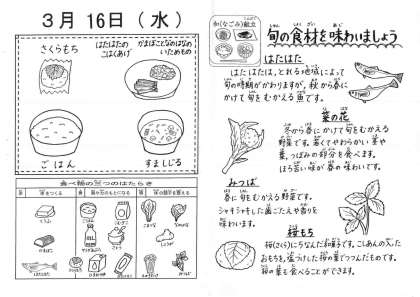 3月 16日 （水）
さくらもち
はたはたの
こはくあげ
かまぼことなのはなの
いためもの
ごはん
すましじる
食べ物の三つのはたらき
和(なごみ)献立
旬の食材を味わいましょう
はたはた
はたはたは、とれる地域によって
旬の時期がかわりますが、秋から春に
かけて旬をむかえる魚です。
菜の花
冬から春にかけて旬をむかえる
野菜です。若くてやわらかい茎や
葉、つぼみの部分を食べます。
ほろ苦い味が春の味わいです。
みつば
春に旬をむかえる野菜です。
シャキシャキした歯ごたえや香りを
味わいます。
桜もち
桜(さくら)にちなんだお菓子です。こしあんの入った
おもちを、塩づけした桜の葉でつつんだものです。
桜の葉も食べることができます。